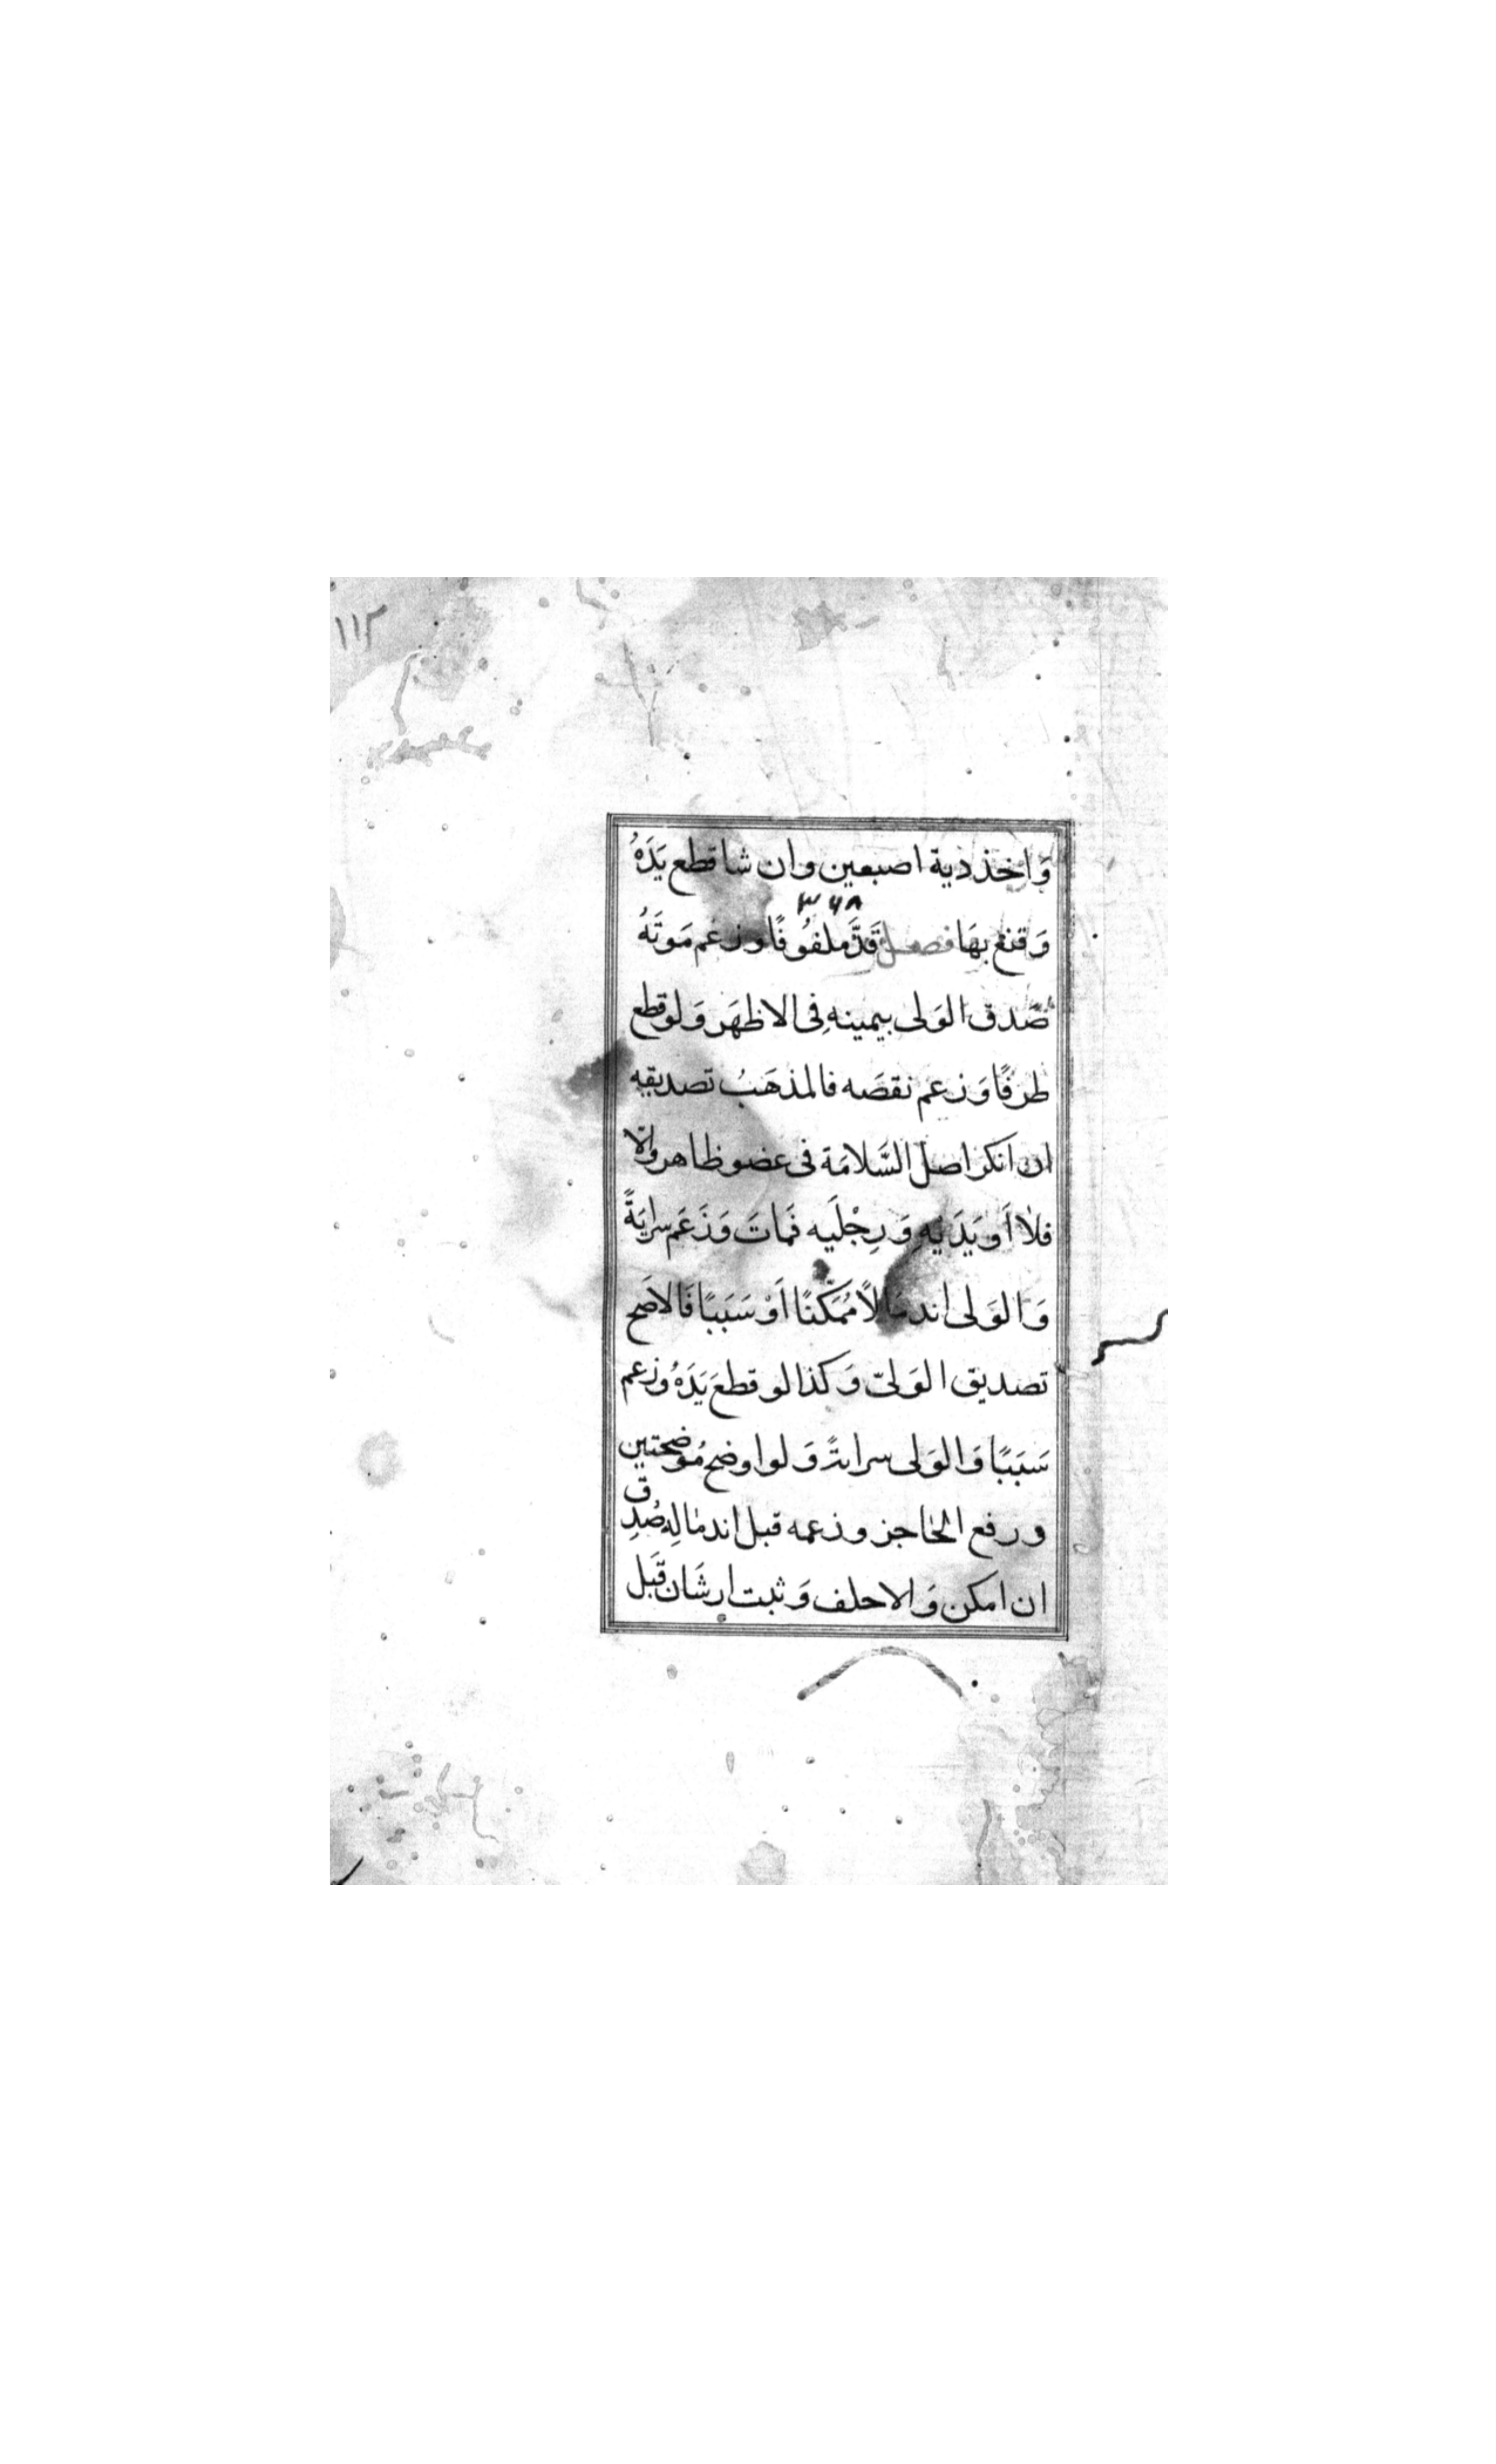 ١١٢
وَاخذ دية اصبعين وان شا قطع يَدَهُ
٣٦٨
وَقنع بهَا فصل قَدَّ ملفُوفًا وزعم مَوتَهُ
صُدق الوَلى بيمينه فِى الاظهَر وَلو قطع
طرفًا وَزعم نقصَه فالمذهَبُ تصديقه
ان انكر اصل السَّلامَة فى عضو ظاهر والّا
فلا اَو يَدَيهِ وَرِجْلَيه فمَاتَ وَزَعَم سرايَةً
وَالوَلى اندمَالاً مُمَكّنًا اَوْ سَبَبًا فَالاصَح
تصديق الوَلىّ وَكذا لو قطعَ يَدَهُ وزعم
سَبَبًا وَالوَلى سرايةً وَلو اوضح مُوضحتين
ورفع الحَاجز وزعمه قبل اندمَالِهِ صُدِق
ان امكن وَالا حلف وَثبت ارشَان قَبل